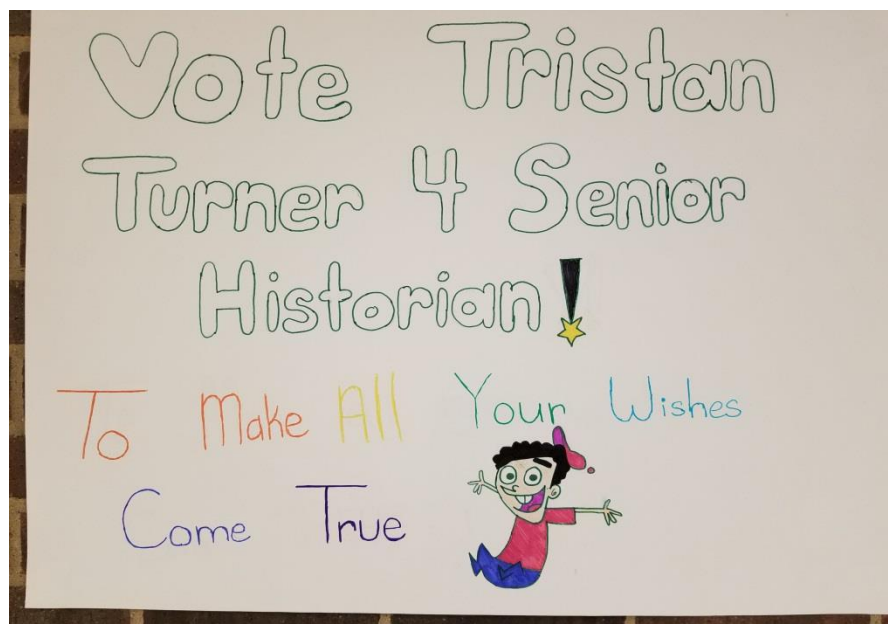 Vote Tristan
Turner 4 Senior
Historian!
To Make All Your Wishes
Come True